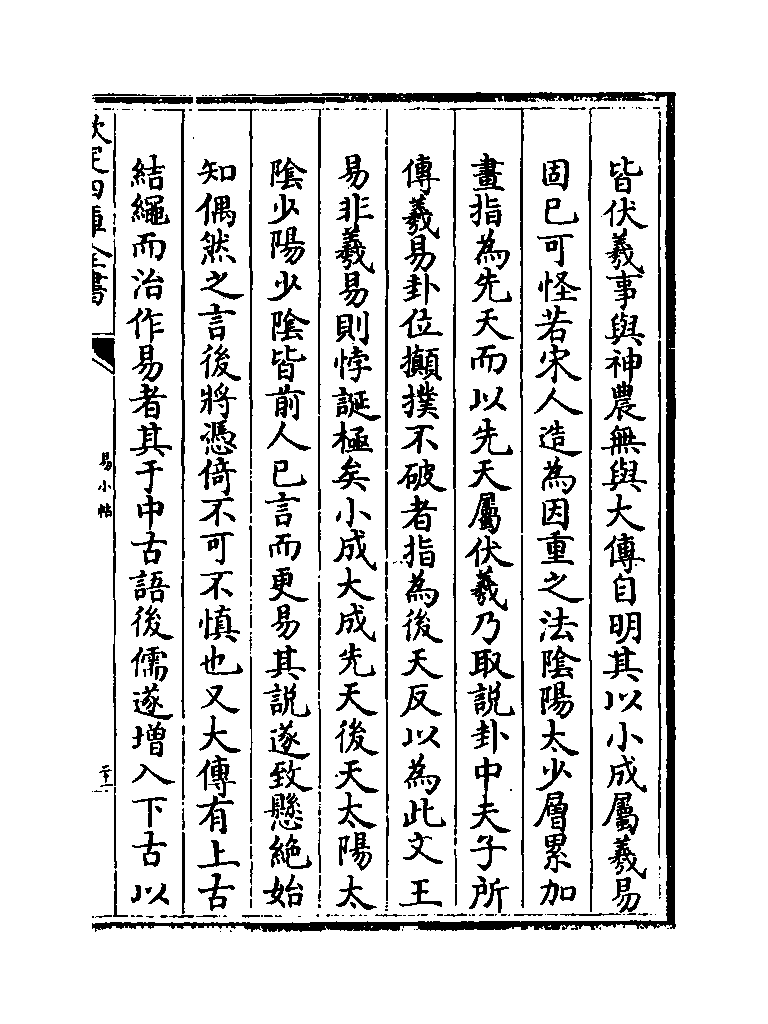 皆伏羲事與神農無與大傳自明其以小成屬羲易
固已可怪若宋人造為因重之法陰陽太少層累加
畫指為先天而以先天屬伏羲乃取説卦中夫子所
傳羲易卦位攧撲不破者指為後天反以為此文王
易非羲易則悖誕極矣小成大成先天後天太陽太
陰少陽少陰皆前人已言而更易其説遂致懸絶始
知偶然之言後將憑倚不可不慎也又大傳有上古
結繩而治作易者其于中古語後儒遂增入下古以
欽定四庫全書
易小帖
二十一